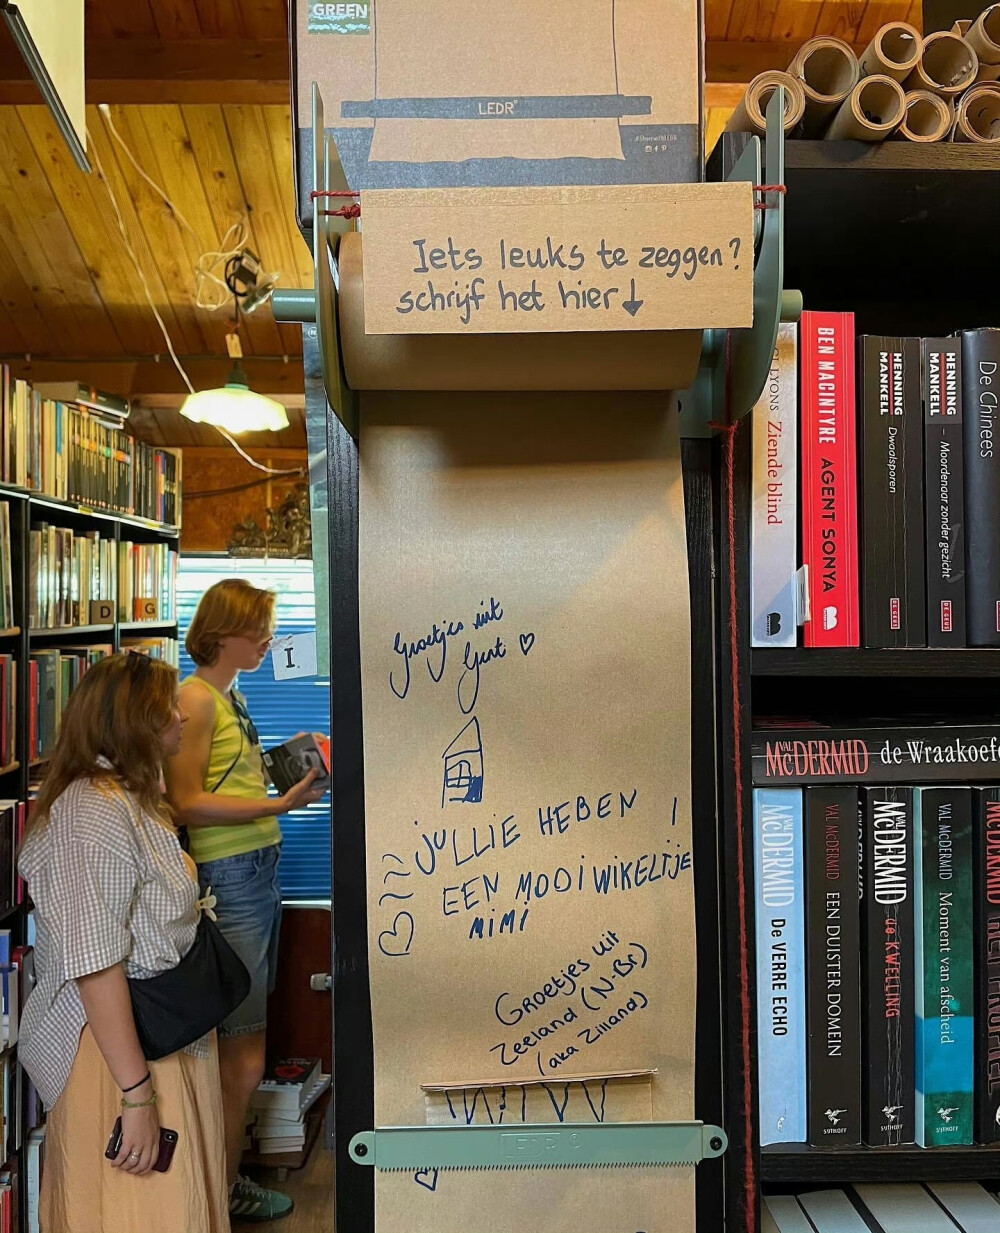 GREEN
LEDR
Iets leuks te zeggen?
schrijf het hier↓
Groetjes uit
Gent ♡
JULLIE HEBEN
EEN MOOI WIKELTJE !
MIMI
Groetjes uit
Zeeland (N-Br)
(aka Zilland)
LEDR
I.
D
G
LYONS Ziende blind
BEN MACINTYRE AGENT SONYA
HENNING MANKELL Dwaalsporen
DE GEUS
HENNING MANKELL – Moordenaar zonder gezicht
DE GEUS
De Chinees
VAL McDERMID de Wraakoefe
VAL McDERMID De VERRE ECHO
VAL McDERMID EEN DUISTER DOMEIN
SIJTHOFF
VAL McDERMID de KWELLING
SIJTHOFF
VAL McDERMID Moment van afscheid
SIJTHOFF